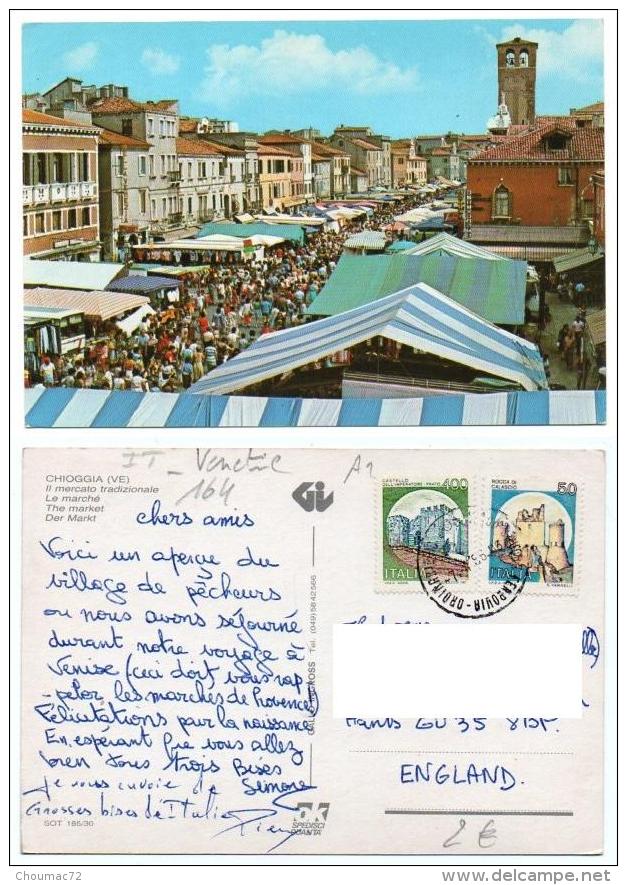 IT - Venetie
164
A2
CHIOGGIA (VE)
Il mercato tradizionale
Le marché
The market
Der Markt
GL
chers amis
Voici un aperçu du
village de pêcheurs
ou nous avons séjourné
durant notre voyage à
Venise (ceci doit vous rap
-peler les marches de Provence)
Félicitations pour la naissance
En espérant que vous allez
bien tous trois Bises
Simone
Je vous envoie de
Grosses bises d'Italie
SOT 185/30
Tel. (049) 5842566
OK
SPEDISCI
QUANTA
CASTELLO
DELL'IMPERATORE - PRATO
400
ITALIA
ROCCA DI
CALASCIO
50
ITALIA
FERROVIA - ORDINARIE
Hants GU35 8BP.
ENGLAND.
2 €
Choumac72
www.delcampe.net